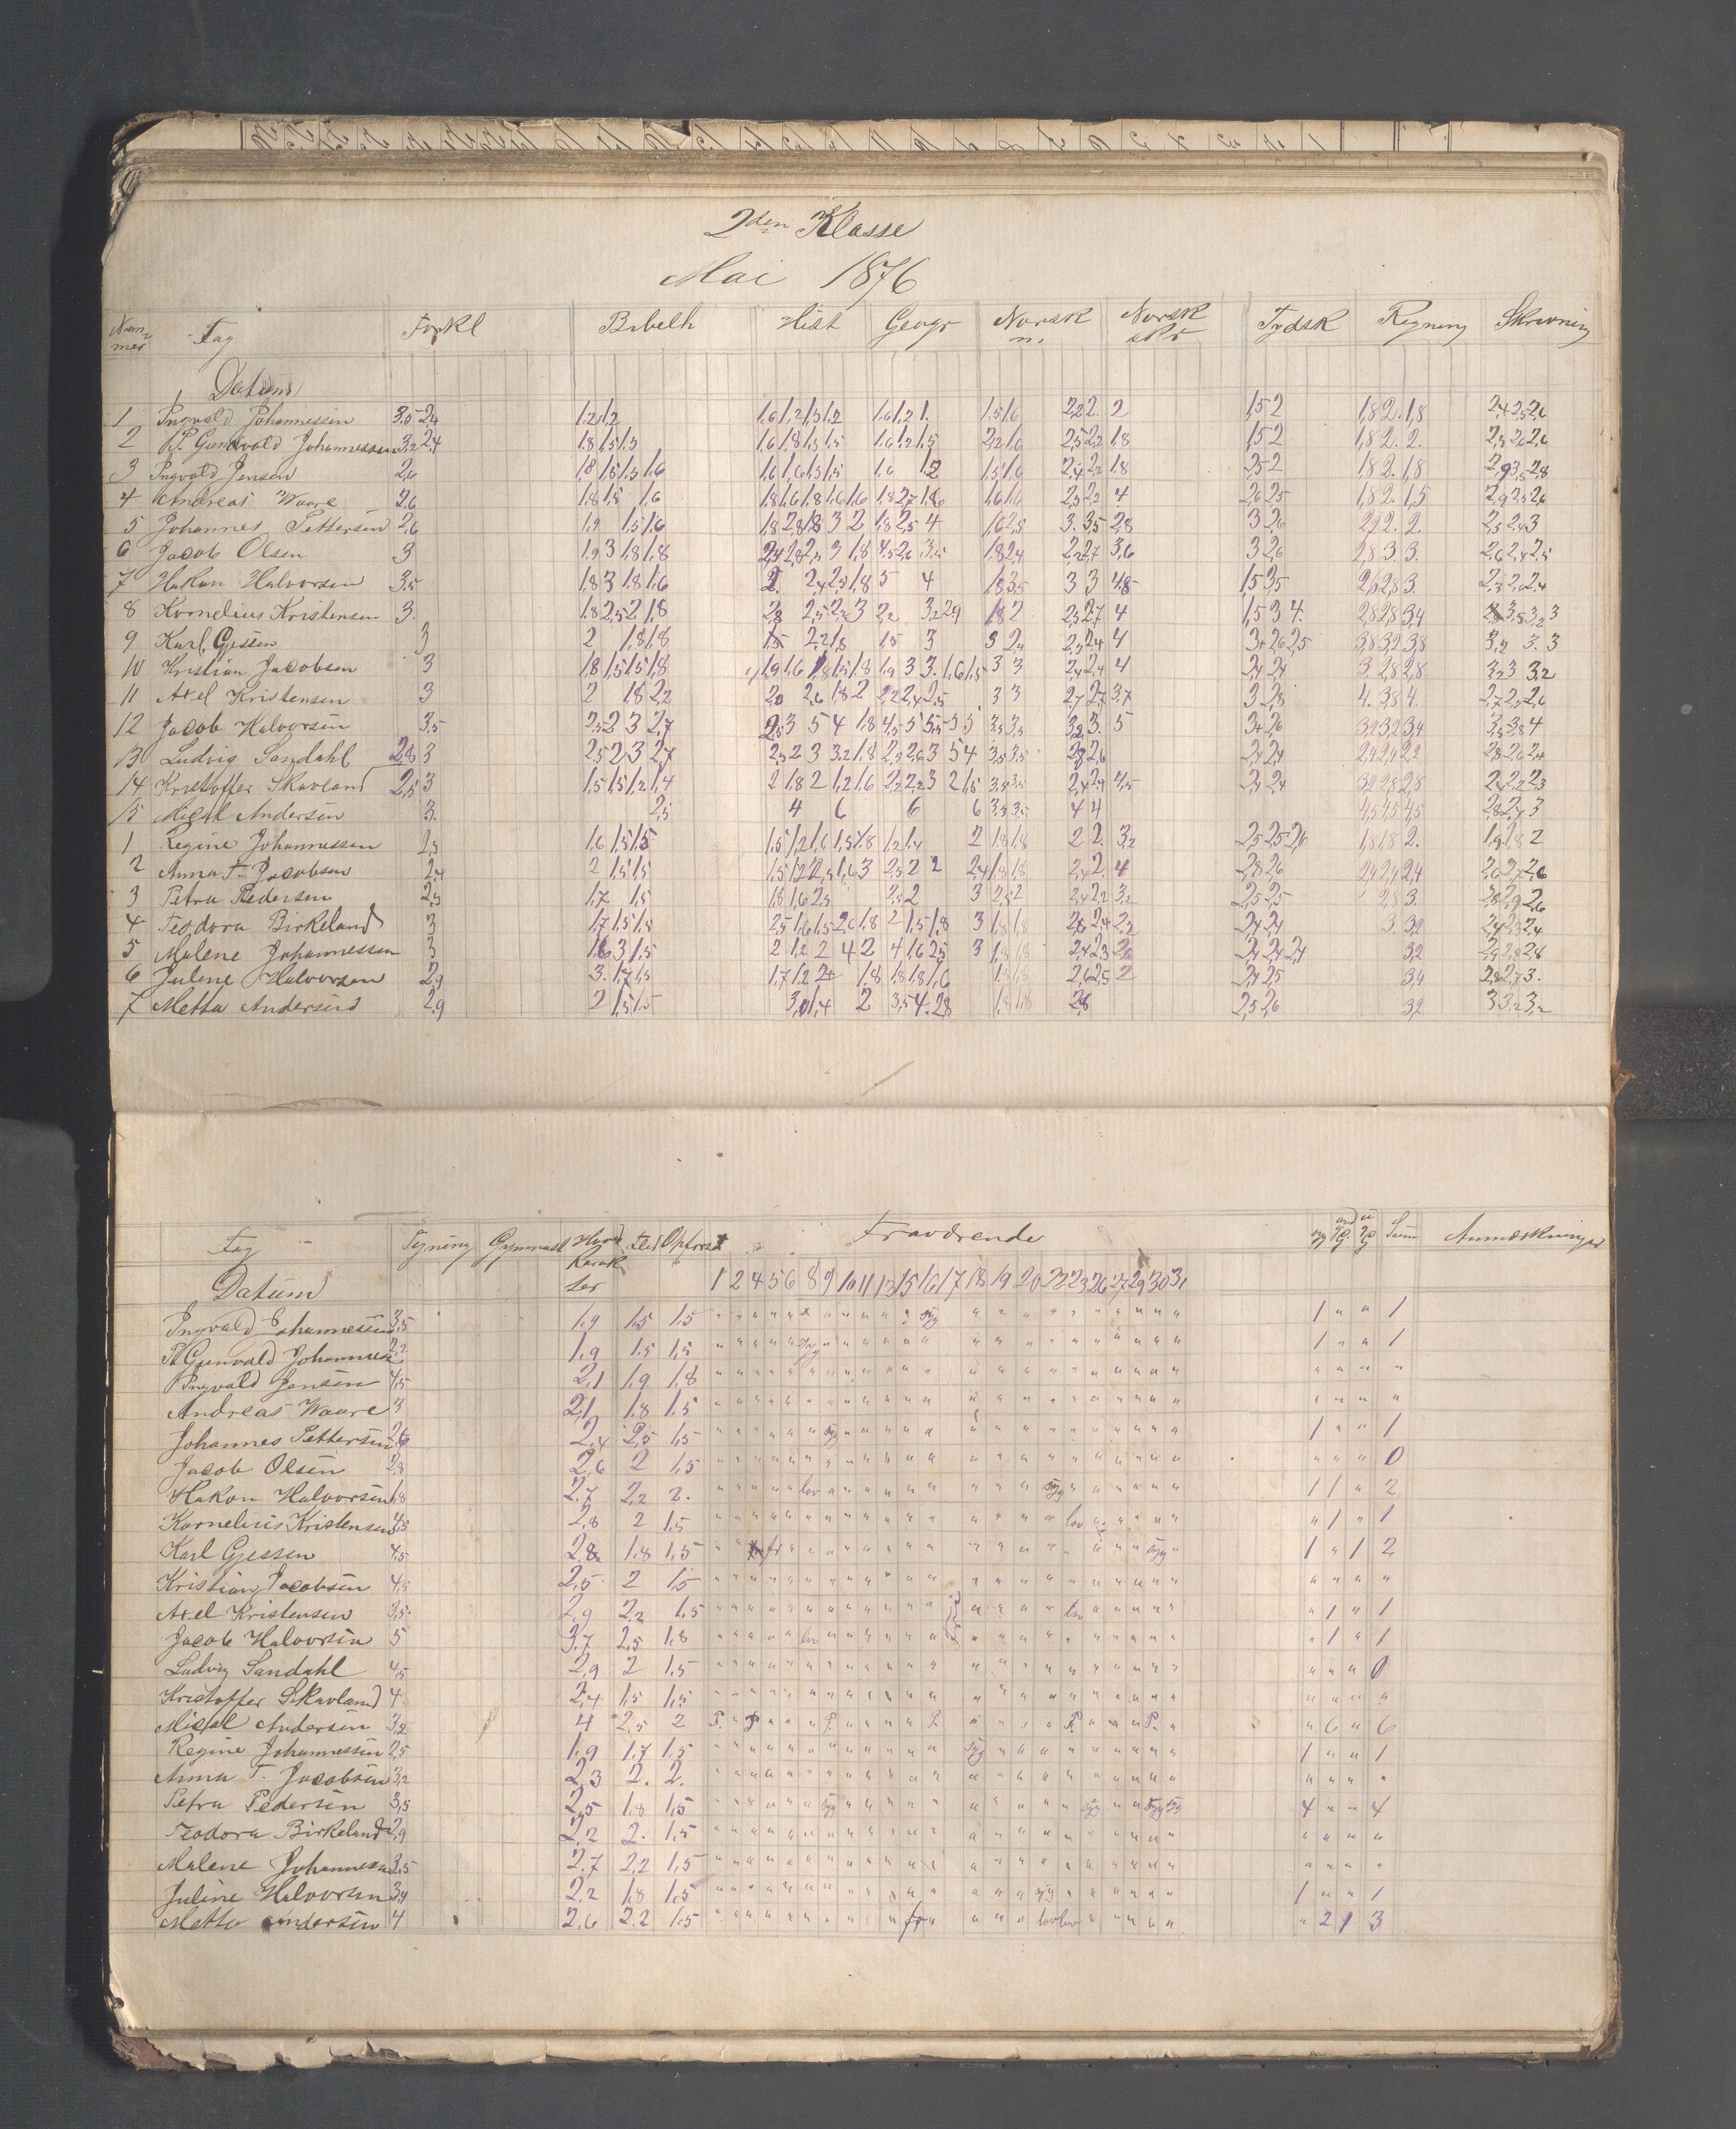 2den Klasse
Mai 1876
Num-mer Fag Forkl Bibelh Hist Geogr Norsk m. Norsk skr Tydsk Regning Skrivning
Datum
1 Ingvald Johannessen 3,5 2,4 1,2 1,2 1,6 1,2 1,5 1,2 1,6 1,2 1. 1,5 1,6 2,2 2. 2 1,5 2 1,8 2. 1,8 2,4 2,5 2,6
2 P. Gunvald Johannessen 3,2 2,4 1,8 1,5 1,5 1,6 1,8 1,5 1,5 1,6 1,2 1,5 2,2 1,6 2,5 2,2 1,8 1,5 2 1,8 2. 2. 2,5 2,6 2,6
3 Ingvald Jensen 2,6 1,8 1,5 1,5 1,6 1,6 1,6 1,5 1,5 1,6 1,2 1,5 1,6 2,4 2,2 1,8 2,5 2 1,8 2. 1,8
4 Andreas Waare 2,6 1,8 1,5 1,6 1,8 1,6 1,8 1,6 1,6 1,8 2,7 1,8 1,6 1,6 2,5 2,2 4 2,6 2,5 1,8 2. 1,5 2,9 2,5 2,6
5 Johannes Pettersen 2,6 1,9 1,5 1,6 1,8 2,8 1,8 3 2 1,8 2,5 4 1,6 2,5 3. 3,5 2,8 3 2,6 2,2 2. 2. 2,5 2,4 3
6 Jacob Olsen 3 1,9 3 1,8 1,8 3 1,8 4,5 2,6 3,5 1,8 2,4 2,2 2,7 3,6 3 2,6 2,8 3 3. 2,6 2,8 2,5
7 Hakon Halvorsen 3,5 1,8 3 1,8 1,6 2. 2,4 2,5 1,8 5 4 1,8 3,5 3 3 4,8 1,5 3,5 2,6 2,8 3.
8 Kornelius Kristensen 3. 1,8 2,5 2 1,8 2,8 2,5 2,2 3 2,2 3,2 2,9 1,8 2 2,5 2,7 4 1,5 3 4. 2,8 2,8 3,4
9 Karl Gjessen 3 2 1,8 1,8 1,5 2,2 1,8 1,5 3 3 2,4 2,5 2,4 4 3,4 2,6 2,5 3,8 3,2 3,8 3,2 3. 3
10 Kristian Jacobsen 3 1,8 1,5 1,5 1,8 1,9 1,6 1,8 1,5 1,8 1,9 3 3. 1,6 1,5 3 3 2,4 2,4 4 2,4 2,4 3 2,8 2,8 3,2 3 3,2
11 Axel Kristensen 3 2 1,8 2,2 2,0 2,6 1,8 2 2,2 2,4 2,5 3 3 2,7 2,7 3,7 3 2,8 4. 3,8 4. 2,7 2,5 2,6
12 Jacob Halvorsen 3,5 2,5 2 3 2,7 2,5 3 5 4 1,8 4,5 5 5,5 3,5 3,5 3,2 3. 5 3,4 2,6 3,2 3,2 3,4
13 Ludvig Sandahl 2,8 3 2,5 2 3 2,7 2,5 2 3 3,2 1,8 2,5 2,6 3 5 4 3,5 3,5 2,8 2,6 2,4 2,4 2,4 2,4 2,2 2,8 2,6 2,4
14 Kristoffer Skavland 2,5 3 1,5 1,5 1,2 1,4 2 1,8 2 1,2 1,6 2,2 2,2 3 2 1,5 3,5 3,5 2,4 2,4 4,5 2,4 2,4 3,2 2,8 2,8 2,4 2,2 2,3
15 Mical Andersen 3. 2,5 4 6 6 6 3,5 3,5 4 4 4,5 4,5 4,5 2,8 2,7 3
1 Regine Johannessen 2,5 1,6 1,5 1,5 1,5 1,2 1,6 1,5 1,8 1,2 1,4 2 1,8 1,8 2 2. 3,2 2,5 2,5 2,6 1,8 1,8 2. 1,9 1,8 2
2 Anna T. Jacobsen 2,4 2 1,5 1,5 1,5 1,2 2,5 1,6 3 2,5 2 2 2,4 1,8 1,8 2,4 2. 4 2,8 2,6 2,4 2,4 2,4 2,6 2,7 2,6
3 Petra Pedersen 2,5 1,7 1,5 1,8 1,6 2,5 2,5 2 3 2,5 2 2,4 2,2 3,2 2,5 2,5 2,8 3. 2,8 2,9 2,6
4 Teodora Birkeland 3 1,7 1,5 1,5 2,5 1,6 1,5 2,6 1,8 2 1,5 1,8 3 1,8 1,8 2,8 2,4 2,2 2,4 2,4 3. 3,2 2,4 2,3 2,4
5 Malene Johannessen 3 1,6 3 1,5 2 1,2 2 4 2 4 1,6 2,5 3 1,8 1,8 2,4 2,3 2,6 2,4 2,4 2,4 3,2
6 Juline Halvorsen 2,9 3. 1,7 1,5 1,7 1,2 2,4 1,8 1,8 1,8 1,6 1,8 1,8 2,6 2,5 2 2,4 2,5 3,4 2,8 2,7 3.
7 Metta Andersen 2,9 2 1,5 1,5 3,0 1,4 2 3,5 4. 2,8 1,8 1,8 2,8 2,5 2,6 3,2 3 3,2 3,2
Fag Tegning Gymnast Hoved Karak ter Flid Opførsel Fraværende syg Sum Anmærkninger
Datum 1 2 4 5 6 8 9 10 11 13 15 16 17 18 19 20 22 23 26 27 29 30 31
Ingvald Johannessen 3,5 1,9 1,5 1,5 syg 1 " " 1
P Gunvald Johannessen 2,2 1,9 1,5 1,5 syg 1 " " 1
Ingvald Jensen 4,5 2,1 1,9 1,8 " " " "
Andreas Waare 3 2,1 1,8 1,5 " " " "
Johannes Pettersen 2,6 2,4 2,5 1,5 syg 1 " " 1
Jacob Olsen 2,8 2,6 2 1,5 " " " 0
Hakon Halvorsen 1,8 2,7 2,2 2. lov syg 1 1 " 2
Kornelius Kristensen 4,5 2,8 2 1,5 lov " 1 " 1
Karl Gjessen 4,5 2,8 1,8 1,5 fr syg 1 " 1 2
Kristian Jacobsen 4,5 2,5 2 1,5 " " " "
Axel Kristensen 3,5 2,9 2,2 1,5 lov " 1 " 1
Jacob Halvorsen 5 3,7 2,5 1,8 lov " 1 " 1
Ludvig Sandahl 4,5 2,9 2 1,5 " " " 0
Kristoffer Skavland 4 2,4 1,5 1,5 " " " "
Mical Andersen 3,2 4 2,5 2 P. P P. P. P. P. " 6 " 6
Regine Johannessen 2,5 1,9 1,7 1,5 syg 1 " " 1
Anna T. Jacobsen 3,2 2,3 2. 2. " " " "
Petra Pedersen 3,5 2,5 1,8 1,5 syg syg syg syg 4 " " 4
Teodora Birkeland 2,9 2,2 2. 1,5 " " " "
Malene Johannessen 3,5 2,7 2,2 1,5 " " " "
Juline Halvorsen 3,4 2,2 1,8 1,5 syg 1 " " 1
Mette Andersen 4 2,6 2,2 1,5 fr lov lov " 2 1 3